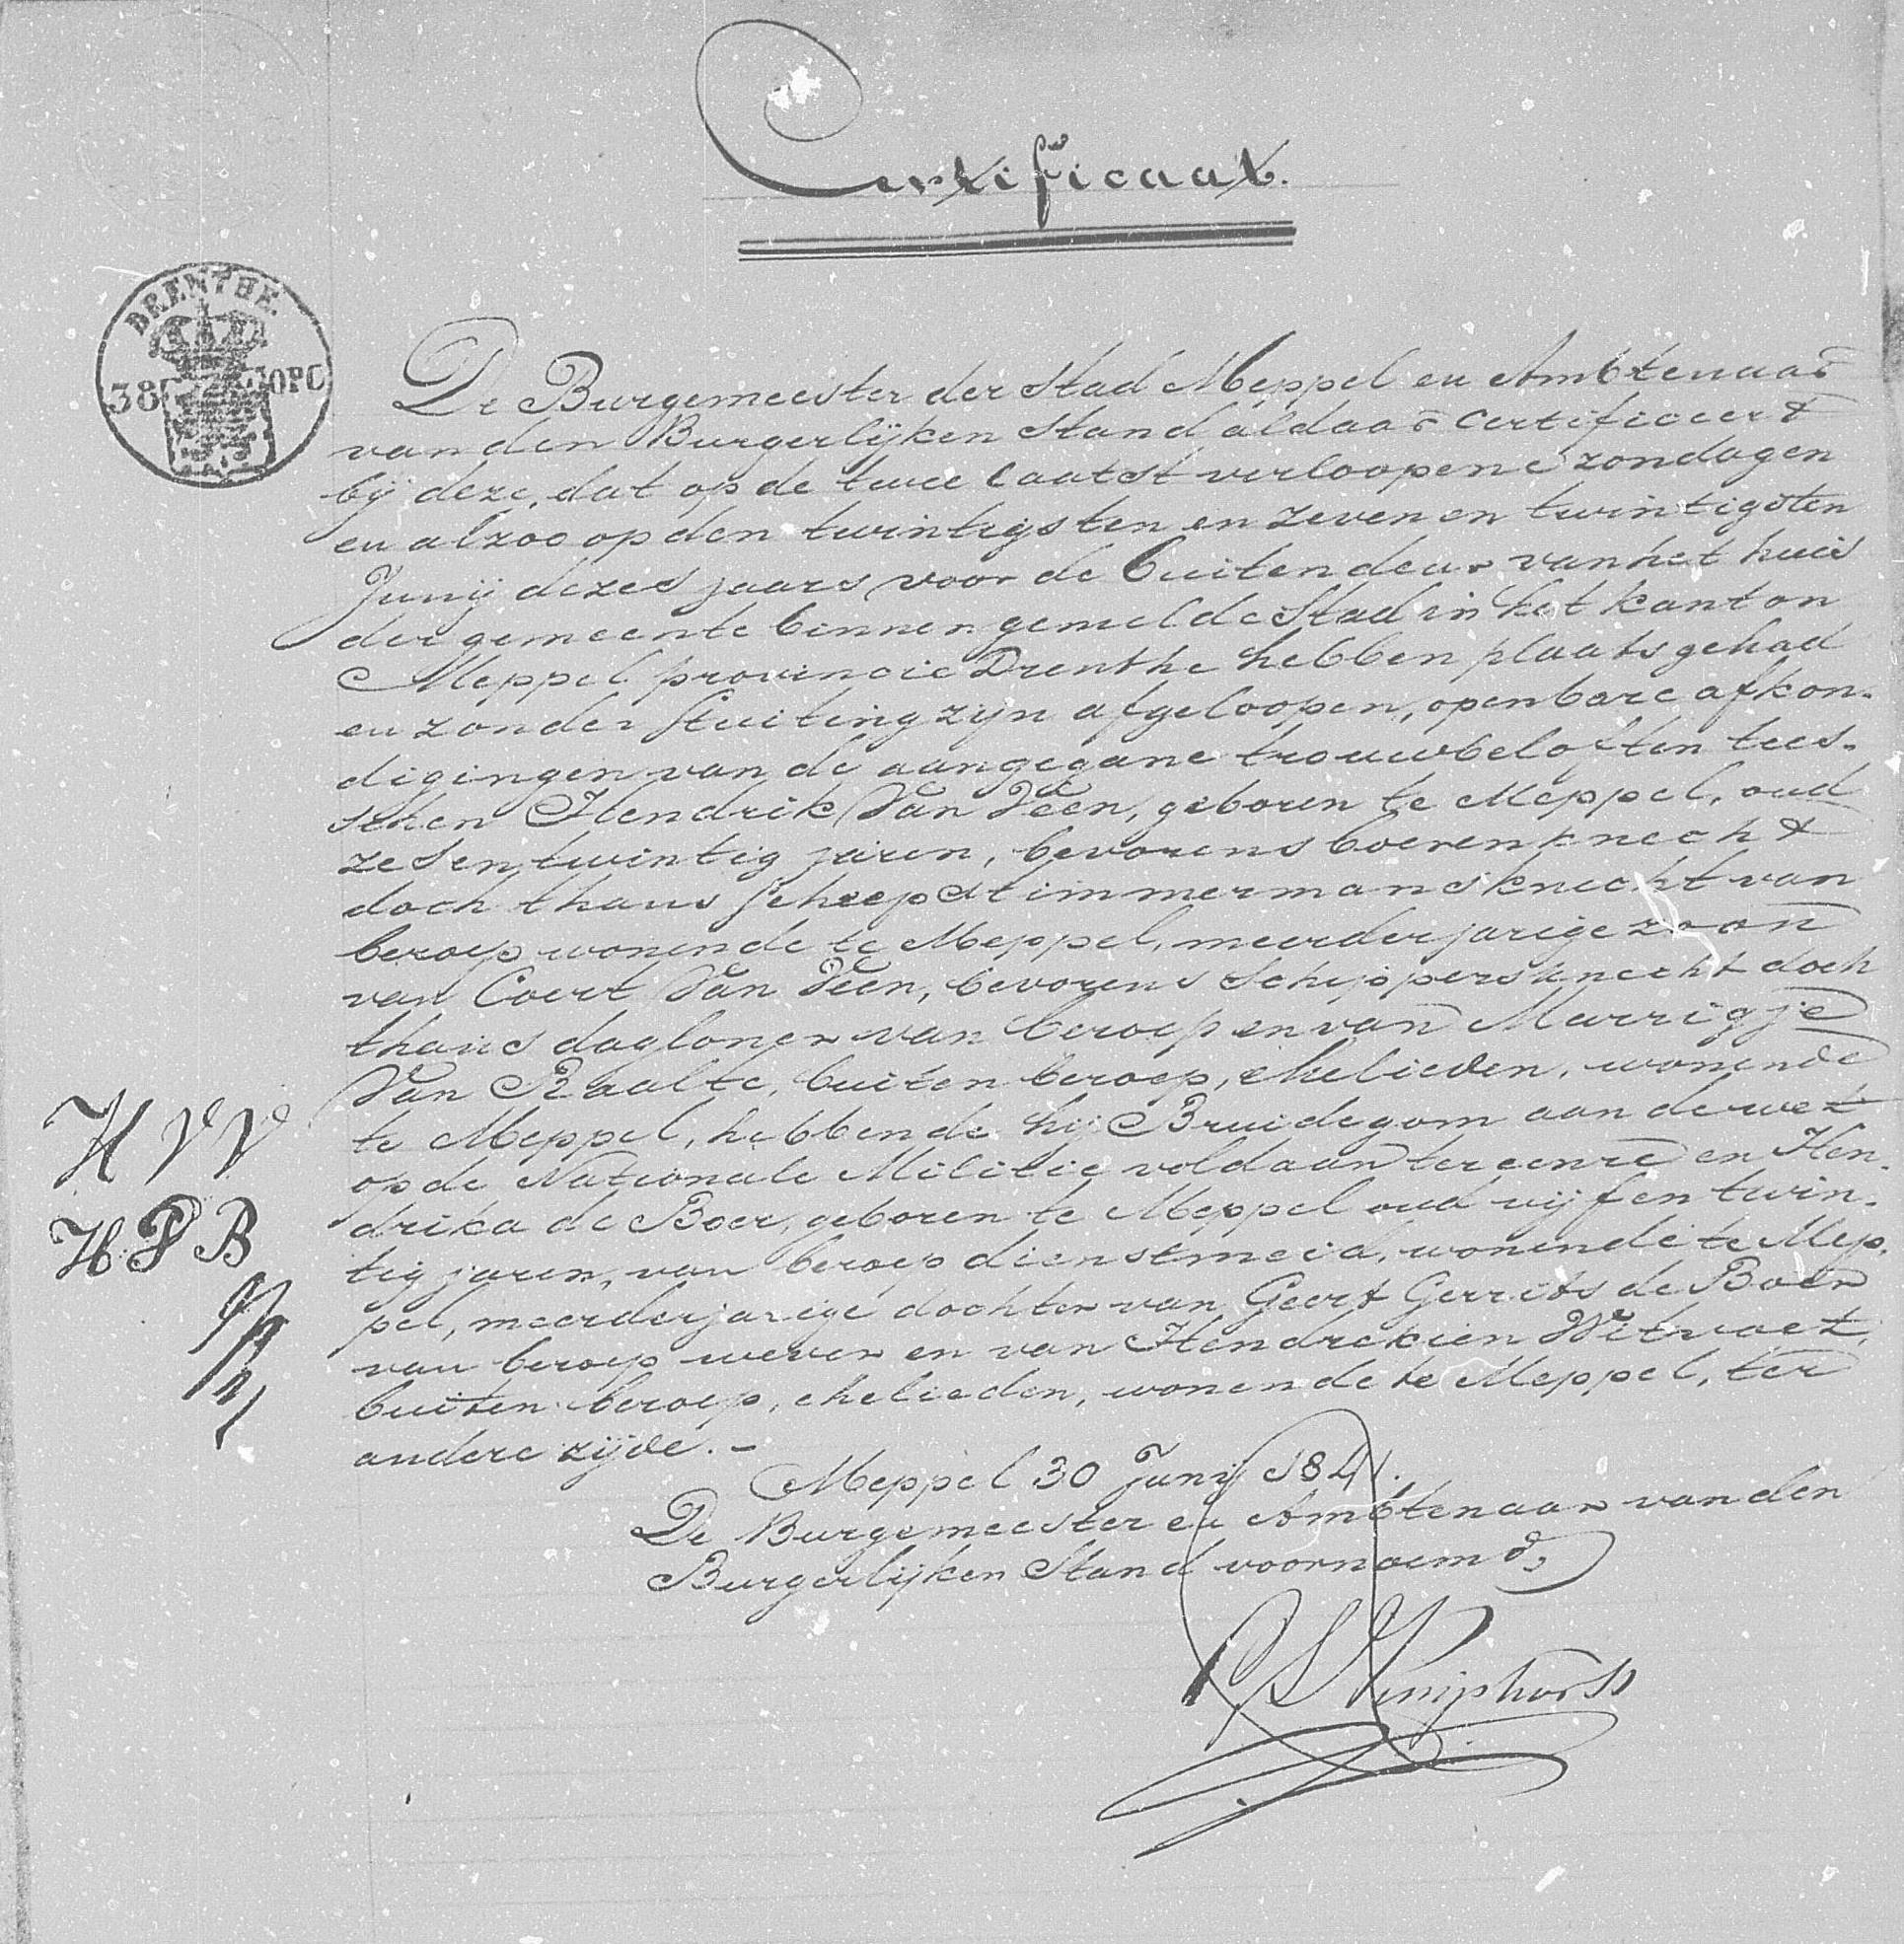 Certificaat.
DRENTHE.
38 OPC
De Burgemeester der Stad Meppel en Ambtenaar
van den Burgerlijken Stand aldaar certificeert
bij deze, dat op de twee laatst verloopene zondagen
en alzoo op den twintigsten en zeven en twintigsten
Junij dezes jaars voor de buitendeur van het huis
der gemeente binnen gemelde Stad in het kanton
Meppel provincie Drenthe hebben plaats gehad
en zonder stuiting zijn afgeloopen, openbare afkon-
digingen van de aangegane trouwbeloften tus-
schen Hendrik Van Veen, geboren te Meppel, oud
zes en twintig jaren, bevorens boerenknecht
doch thans scheepstimmermansknecht van
beroep wonende te Meppel, meerderjarige zoon
van Coert Van Veen, bevorens schippersknecht doch
thans dagloner van beroep en van Marrigje
Van Raalte, buiten beroep, ehelieden, wonende
te Meppel, hebbende hij Bruidegom aan de wet
op de Nationale Militie voldaan ter eenre en Hen-
drika de Boer, geboren te Meppel oud vijf en twin-
tig jaren, van beroep dienstmeid, wonende te Mep-
pel, meerderjarige dochter van Geert Gerrits de Boer
van beroep wever en van Hendrekien Witvoet,
buiten beroep, ehelieden, wonende te Meppel, ter
andere zijde. -
H V V
H D B
Meppel 30 Junij 1841.
De Burgemeester en Ambtenaar van den
Burgerlijken Stand voornoemd,